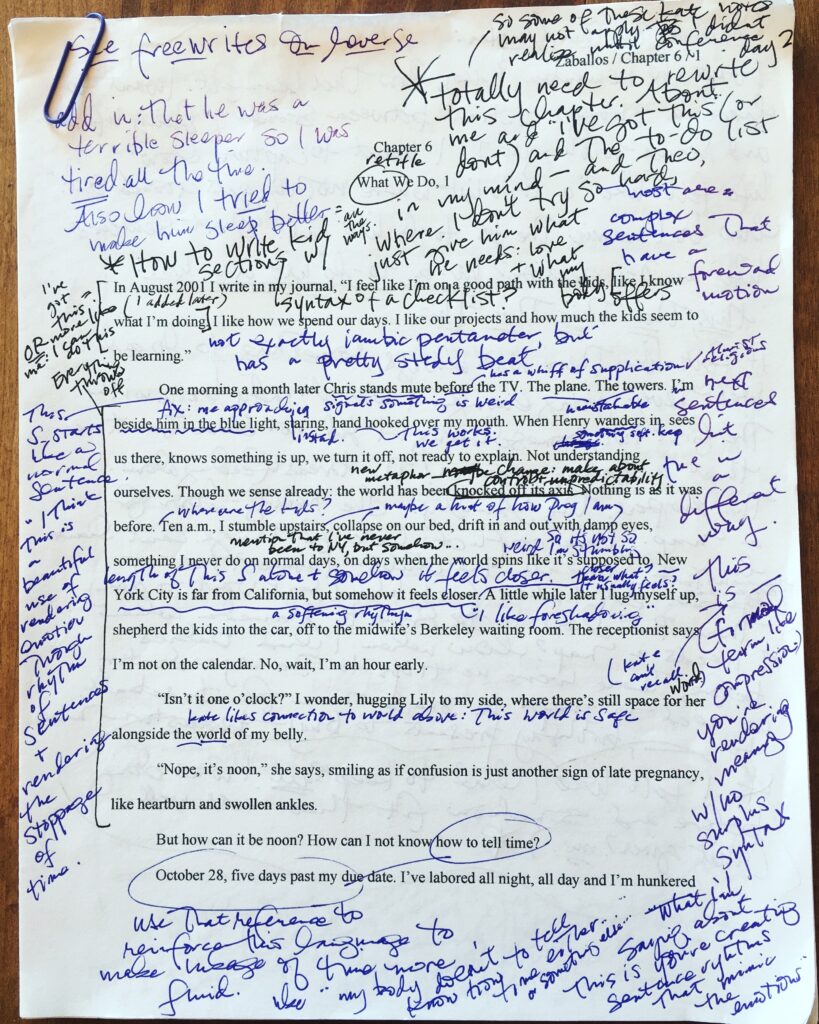 See freewrites on loverse
so some of these Kate notes
may not apply didn't
realize until conference
day 2
Zaballos / Chapter 6 \ 1
* Totally need to rewrite
this chapter. About
me and "I've got this (or
don't) and the to-do list
in my mind — and Theo,
where I don't try so hard,
just give him what
he needs: love
+ what my
body offers
add in: that he was a
terrible sleeper so I was
tired all the time.
Also how I tried to
make him sleep better =
all the ways.
Chapter 6
retitle
What We Do, 1
* How to write kid
sections w/
syntax of a checklist?
most are
complex
sentences that
have a
forward
motion
I've
got
this.
OR more like
me: I can
do this
Everything
throws
off
In August 2001 I write in my journal, "I feel like I'm on a good path with the kids, like I know
(I added later)
what I'm doing. I like how we spend our days. I like our projects and how much the kids seem to
not exactly iambic pentameter, but
be learning."
has a pretty steady beat
has a whiff of supplication, almost religious
One morning a month later Chris stands mute before the TV. The plane. The towers. I'm
Fix: me approaching signals something is weird
beside him in the blue light, staring, hand hooked over my mouth. When Henry wanders in, sees
instead. This works. we get it.
something soft. keep
us there, knows something is up, we turn it off, not ready to explain. Not understanding
new metaphor maybe change: make about control + unpredictability
ourselves. Though we sense already: the world has been knocked off its axis. Nothing is as it was
where are the kids? maybe a hint of how preg I am
before. Ten a.m., I stumble upstairs, collapse on our bed, drift in and out with damp eyes,
mention that I've never
been to NY, but somehow...
something I never do on normal days, on days when the world spins like it's supposed to. New
length of this S alone + somehow it feels closer.
closer than what it usually feels?
York City is far from California, but somehow it feels closer. A little while later I lug myself up,
a softening rhythm "I like foreshadowing"
shepherd the kids into the car, off to the midwife's Berkeley waiting room. The receptionist says
I'm not on the calendar. No, wait, I'm an hour early.
(Kate can't recall word)
"Isn't it one o'clock?" I wonder, hugging Lily to my side, where there's still space for her
Kate likes connection to world above: This world is safe
alongside the world of my belly.
"Nope, it's noon," she says, smiling as if confusion is just another sign of late pregnancy,
like heartburn and swollen ankles.
But how can it be noon? How can I not know how to tell time?
October 28, five days past my due date. I've labored all night, all day and I'm hunkered
This
S. starts
like a
normal
sentence.
"I think
this is
a
beautiful
use of
rendering
emotion
through
rhythm
of
sentences
+
rendering
the
stoppage
of
time.
next
sentences
but
in
a
different
way.
This
is —
(formal
term like
compression)
you're
rendering
meaning
w/ no
surplus
syntax
use that reference to
reinforce this language to
make image of time more
fluid.
like "my body doesn't
know how to tell
time either...
or something else..."
"What I'm
saying about
this is you're creating
sentence rhythms
that mimic
the emotions"